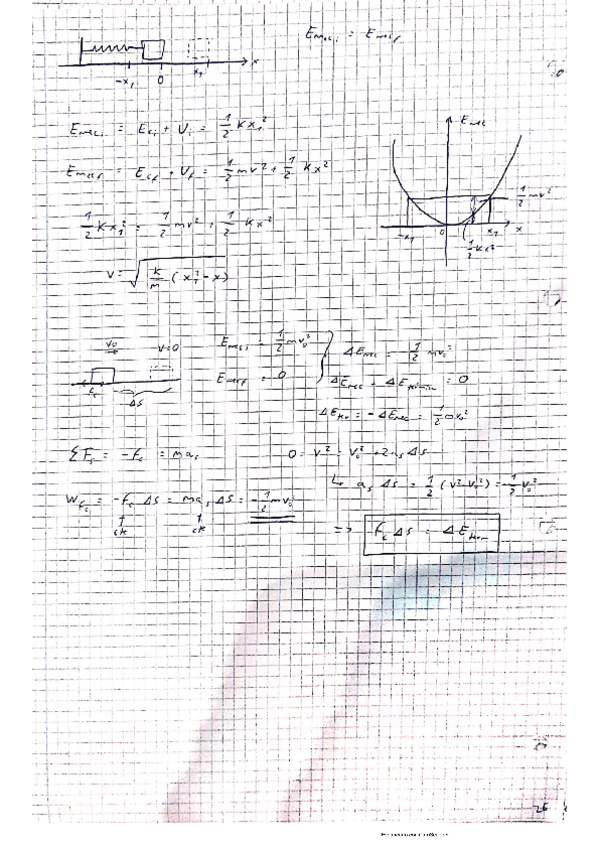 E_mec_i = E_mec_f
-x₁ 0 x₁ x
E_mec_i = E_c_i + U_i = 1/2 K x₁²
E_mec_f = E_c_f + U_f = 1/2 m v² + 1/2 K x²
1/2 K x₁² = 1/2 m v² + 1/2 K x²
v = √(K/m (x₁² - x))
E_mec
1/2 m v²
-x₁ 0 x₁ x
1/2 K x²
v₀ v=0
f_c Δs
E_mec_i = 1/2 m v₀²
E_mec_f = 0
ΔE_mec = -1/2 m v₀²
= 0
= -ΔE_mec = 1/2 m v₀²
ΣF_s = -f_c = m a_s
0 = v² = v₀² + 2 a_s Δs
↳ a_s Δs = 1/2 (v² - v₀²) = -1/2 v₀²
W_f_c = -f_c Δs = m a_s Δs = -1/2 m v₀²
ck ck
=> f_c Δs = ΔE
26